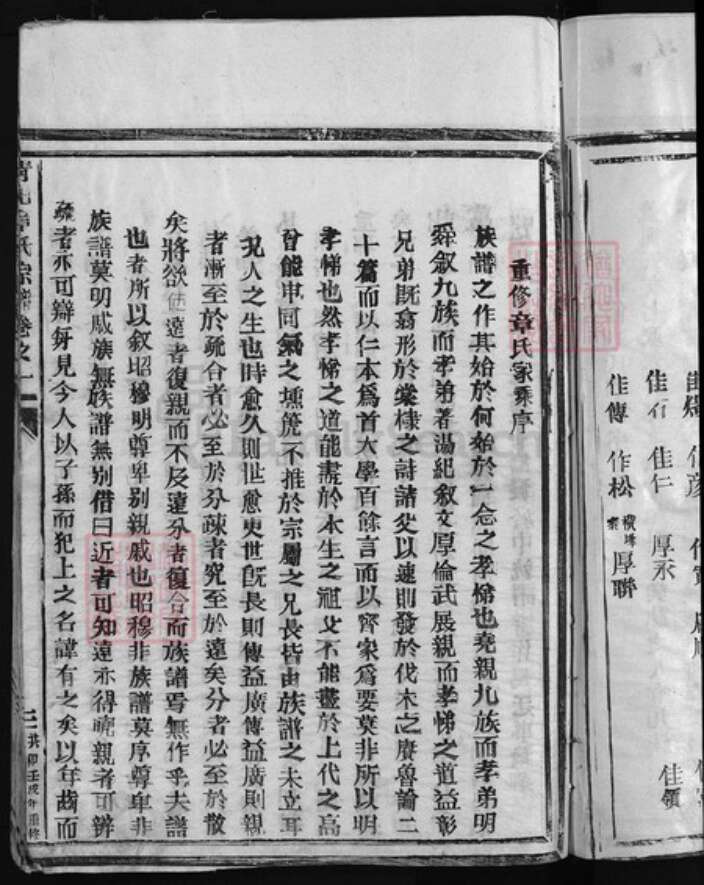 重修章氏家乘序
族譜之作其始於何始於一念之孝悌也堯親九族而孝弟明
舜叙九族而孝弟著湯紀叙文厚倫武展親而孝悌之道益彰
兄弟既翕形於棠棣之詩諸父以速則發於伐木之賡魯論二
十篇而以仁本爲首大學百餘言而以齊家爲要莫非所以明
孝悌也然孝悌之道能盡於水生之祖父不能盡於上代之高
曾能申同氣之壎箎不推於宗屬之兄長皆由族譜之未立耳
况人之生也時愈久則世愈更世既長則傳益廣傳益廣則親
者漸至於疏合者必至於分疎者究至於遠矣分者必至於散
矣將欲使遠者復親而不及遠分者復合而族譜焉無作乎夫譜
也者所以叙昭穆明尊卑别親戚也昭穆非族譜莫序尊卑非
族譜莫明戚族無族譜無别借曰近者可知遠亦得曉親者可辨
疏者亦可辯每見今人以子孫而犯上之名諱有之矣以年齒而
氏宗譜卷之一
二
共和壬戌年重修
佳傳 作松 厚聯
佳石 佳仁 厚永
佳領